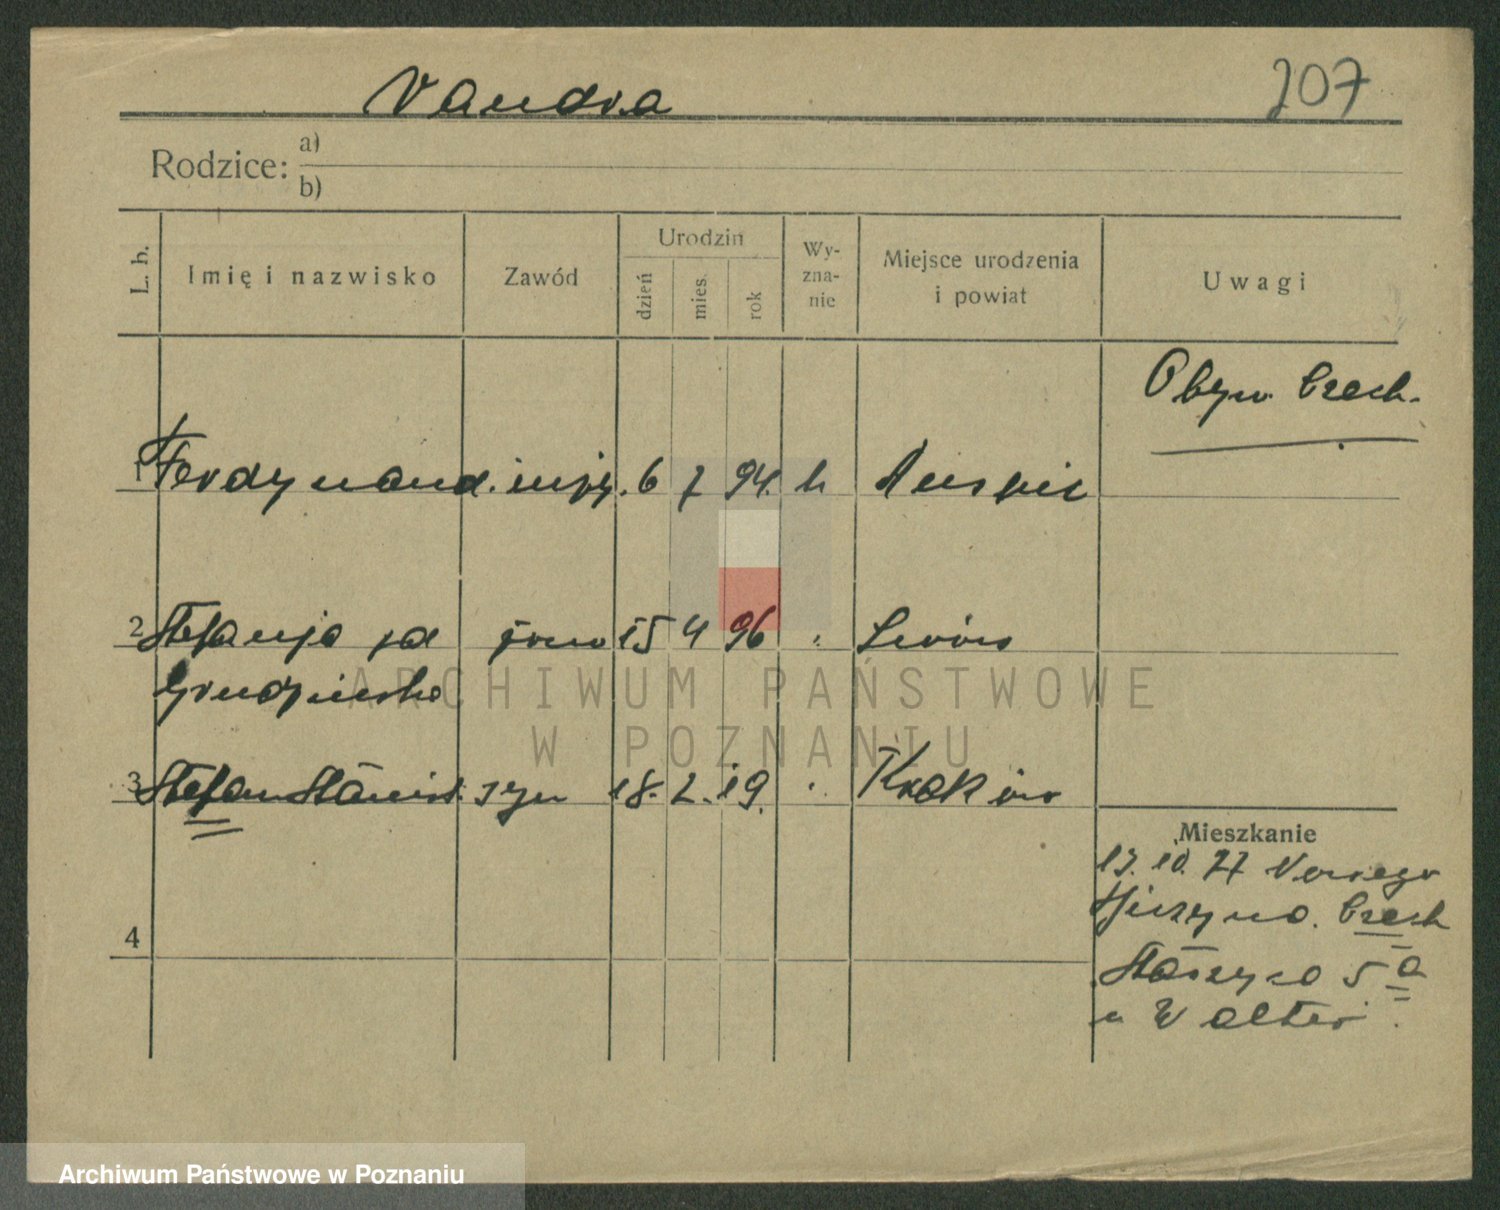 Vandra
207
Rodzice: a)
b)
L. b.
Imię i nazwisko
Zawód
Urodzin
dzień
mies.
rok
Wy-
zna-
nie
Miejsce urodzenia
i powiat
Uwagi
Obyw. Czech.
1 Ferdynand. inży. 6 7 94.
2 Stefanja żona 15 4 96 " Lwów
Grudzińska
3 Stefan Stanisł. syn 18. 2. 19. " Kraków
4
Mieszkanie
Czech
Staszyca 5 a
u Walter
ARCHIWUM PAŃSTWOWE
W POZNANIU
Archiwum Państwowe w Poznaniu